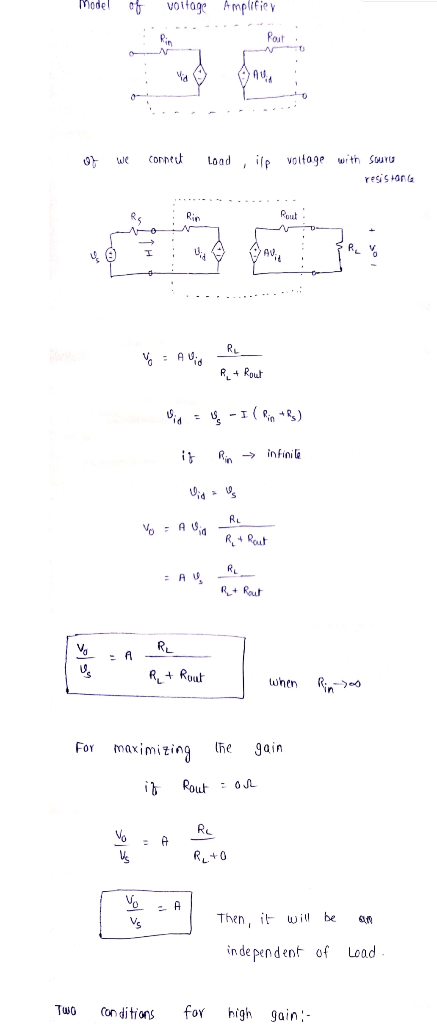 Model of voltage Amplifier
Rin Rout
Vid AVid
If we connect Load , i/p voltage with source
resistance
Rs Rin Rout
Vs I Vid AVid RL Vo + -
Vo = A Vid RL / RL + Rout
Vid = Vs - I ( Rin + Rs )
if Rin → infinite
Vid = Vs
Vo = A Vid RL / RL + Rout
= A Vs RL / RL + Rout
Vo / Vs = A RL / RL + Rout when Rin → ∞
For maximizing the gain
if Rout = 0 Ω
Vo / Vs = A RL / RL + 0
Vo / Vs = A Then, it will be an
independent of Load.
Two conditions for high gain:-